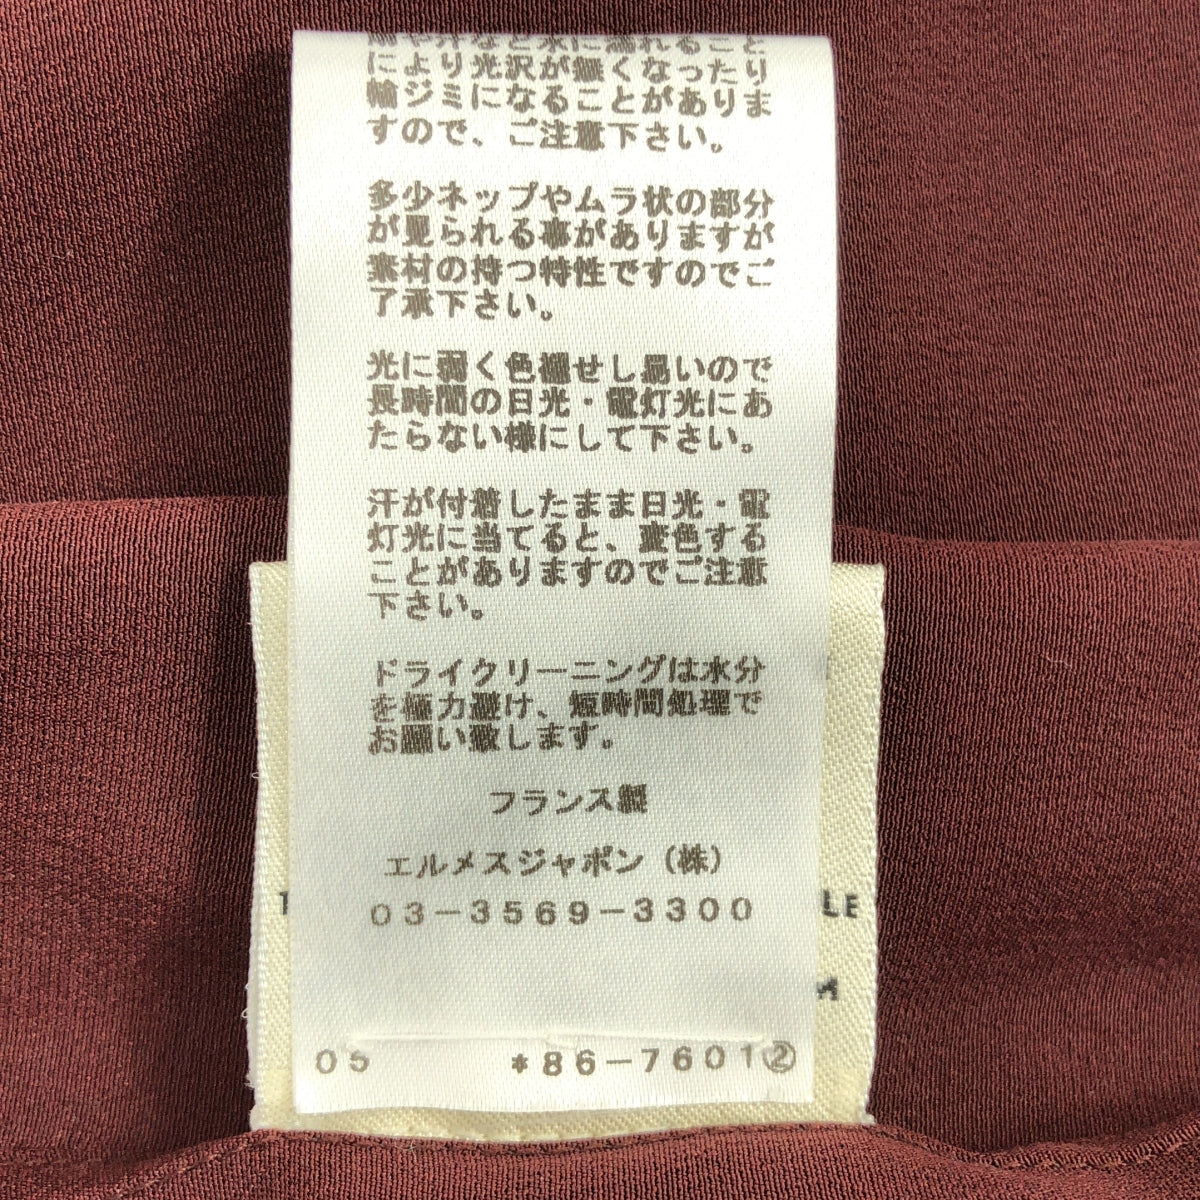 雨や汗など水に濡れること
により光沢が無くなったり
輪ジミになることがありま
すので、ご注意下さい。
多少ネップやムラ状の部分
が見られる事がありますが
素材の持つ特性ですのでご
了承下さい。
光に弱く色褪せし易いので
長時間の日光・電灯光にあ
たらない様にして下さい。
汗が付着したまま日光・電
灯光に当てると、変色する
ことがありますのでご注意
下さい。
ドライクリーニングは水分
を極力避け、短時間処理で
お願い致します。
フランス製
エルメスジャポン（株）
03-3569-3300
LE
M
05 *86-7601②